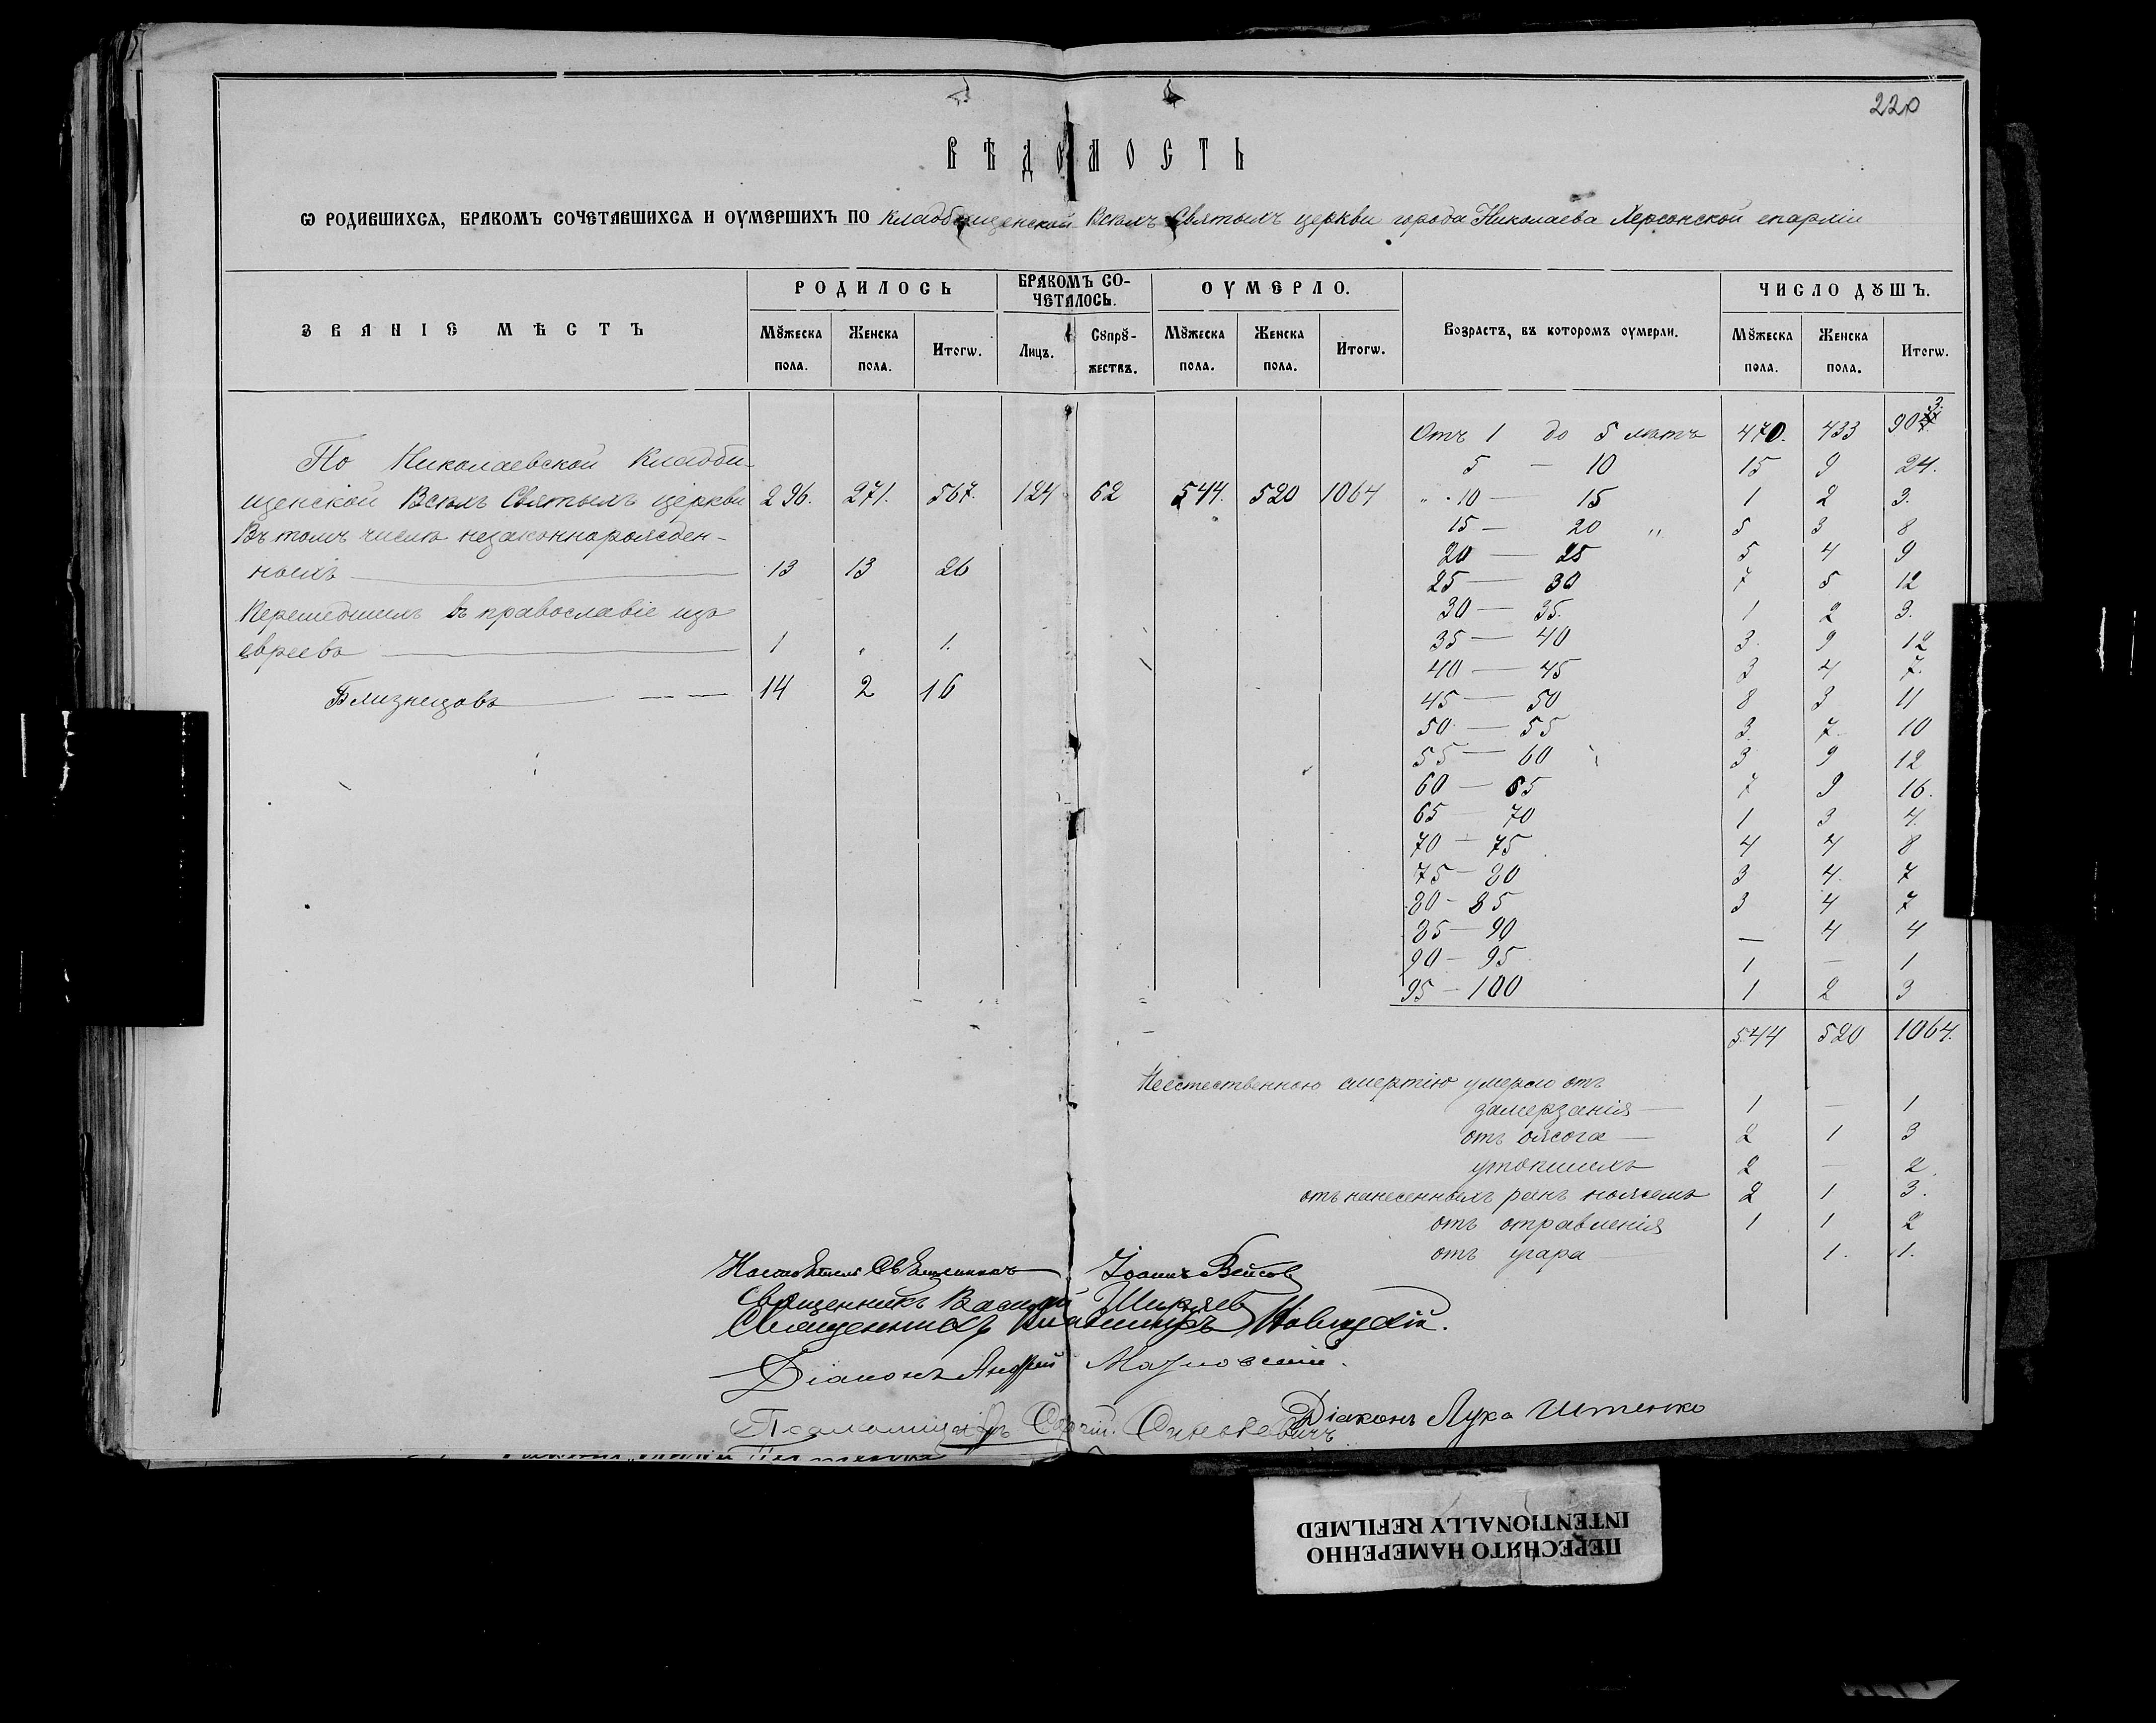 220
ВѢДОМОСТЬ
Ѡ РОДИВШИХСѦ, БРАКОМЪ СОЧЕТАВШИХСѦ И ОУМЕРШИХЪ ПО кладбищенской Всѣхъ Святыхъ церкви города Николаева Херсонской епархіи
ЗВАНІЕ МѢСТЪ
РОДИЛОСЬ
БРАКОМЪ СО-
ЧЕТАЛОСЬ.
ОУМЕРЛО.
Возрастъ, въ которомъ оумерли.
ЧИСЛО ДꙊШЪ.
Мꙋжеска пола. Женска пола. Итогѡ. Лицъ. Сꙋпрꙋ-жествъ. Мꙋжеска пола. Женска пола. Итогѡ. Мꙋжеска пола. Женска пола. Итогѡ.
По Николаевской Кладби-
щенской Всѣхъ Святыхъ церкви 296. 271. 567. 124 62 544. 520 1064
Въ томъ числѣ незаконнорожден-
ныхъ 13 13 26
Перешедшихъ въ православіе изъ
евреевъ 1 „ 1.
Близнецовъ 14 2 16
Отъ 1 до 5 лѣтъ 470. 433 903.
5 — 10 15 9 24.
„ 10 — 15 1 2 3.
15 — 20 „ 5 3 8
20 — 25 5 4 9
25 — 30 7 5 12
30 — 35. 1 2 3.
35 — 40 3. 9 12
40 — 45 3 4 7.
45 — 50 8 3 11
50 — 55 3. 7. 10
55 — 60 3 9 12
60 — 65 7 9 16.
65 — 70 1 3 4.
70 — 75 4 4 8
75 — 80 3 4. 7
80 - 85 3 4 7
85 — 90 — 4 4
90 - 95 1 — 1
95 - 100 1 2 3
544 520 1064.
Неестественною смертію умерло отъ
замерзанія — 1 — 1
отъ ожога — 2 1 3
утопшихъ 2 — 2.
отъ нанесенныхъ ранъ ножемъ 2 1 3.
отъ отравленія 1 1 2
отъ угара — 1. 1.
Настоятель Священникъ Іоаннъ
Священникъ Василій Ширяев
Священникъ Владиміръ
Діаконъ Андрей
Діаконъ Лука Иутенко
Псаломщикъ Сергій Синькевичъ
ПЕРЕСНЯТО НАМЕРЕННО
INTENTIONALLY REFILMED